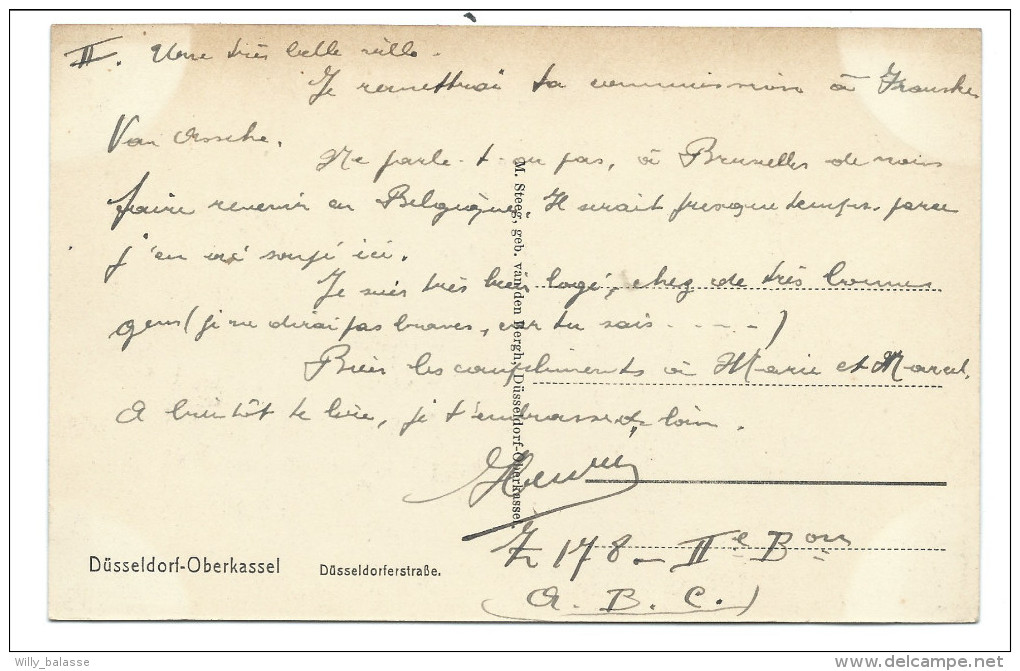 II. Une très belle ville.
Je remettrai ta commission à Franske
Van Assche.
Ne parle-t-on pas, à Bruxelles de nous
faire revenir en Belgique. Il serait presque temps, parce
j'en ai soupé ici.
Je suis très bien logé, chez de très bonnes
gens (je ne dirai pas braves, car tu sais - - - -)
Bien les compliments à Marie et Marcel.
A bientôt te lire, je t'embrasse de loin.
Henri
Z 178 - IIe Bon
(A. B. C.)
M. Steeg, geb. van den Bergh, Düsseldorf-Oberkassel.
Düsseldorf-Oberkassel Düsseldorferstraße.
Willy_balasse
www.delcampe.net